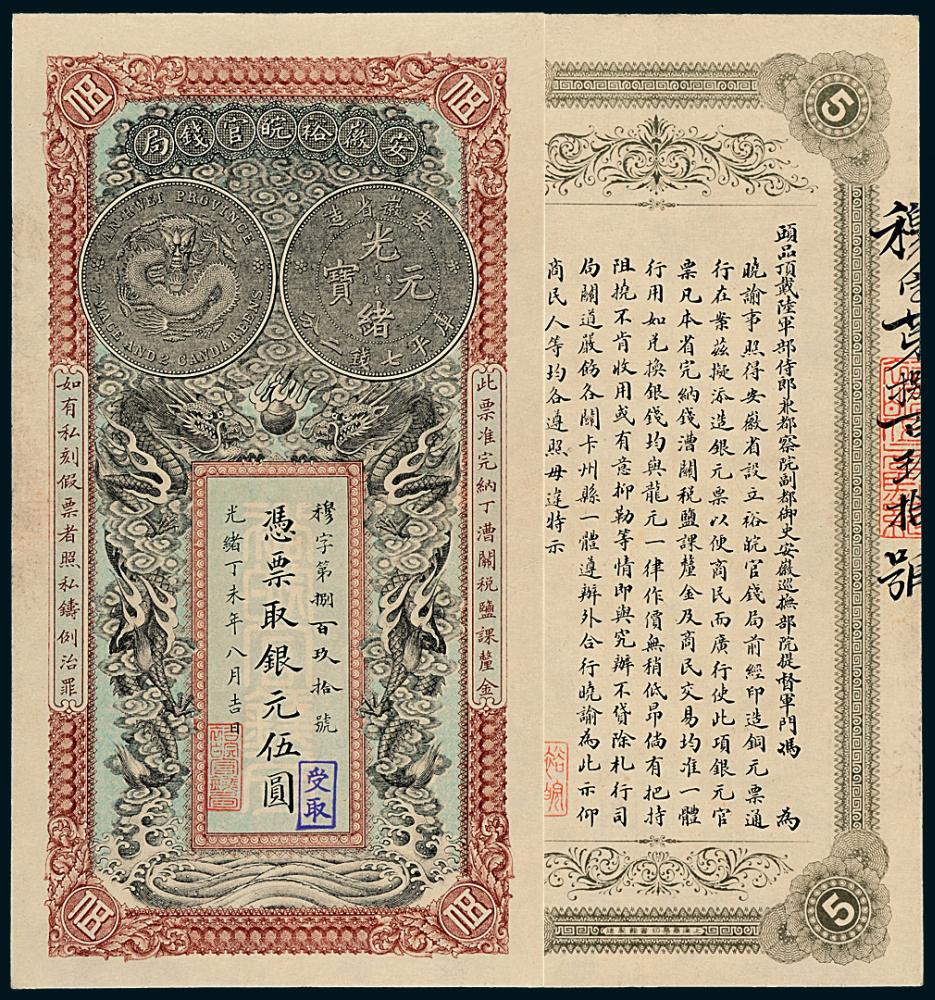 安徽裕皖官錢局
AN-HWEI PROVINCE
7 MACE AND 2 CANDAREENS
安徽省造
光緒元寶
庫平七錢二分
此票准完納丁漕關税鹽課釐金
如有私刻假票者照私鑄例治罪
穆字第捌百玖拾號
憑票取銀元伍圓
光緒丁未年八月吉日
受取
5
頭品頂戴陸軍部侍郎兼都察院副都御史安徽巡撫部院提督軍門馮 為
曉諭事照得安徽省設立裕皖官錢局前經印造銅元票通
行在案茲擬添造銀元票以便商民而廣行使此項銀元官
票凡本省完納錢漕關税鹽課釐金及商民交易均准一體
行用如兑換銀錢均與龍元一律作價無稍低昂倘有把持
阻撓不肯收用或有意抑勒等情即與究辦不貸除札行司
局關道嚴飭各關卡州縣一體遵辦外合行曉諭為此示仰
商民人等均各遵照毋違特示
裕皖
號
5